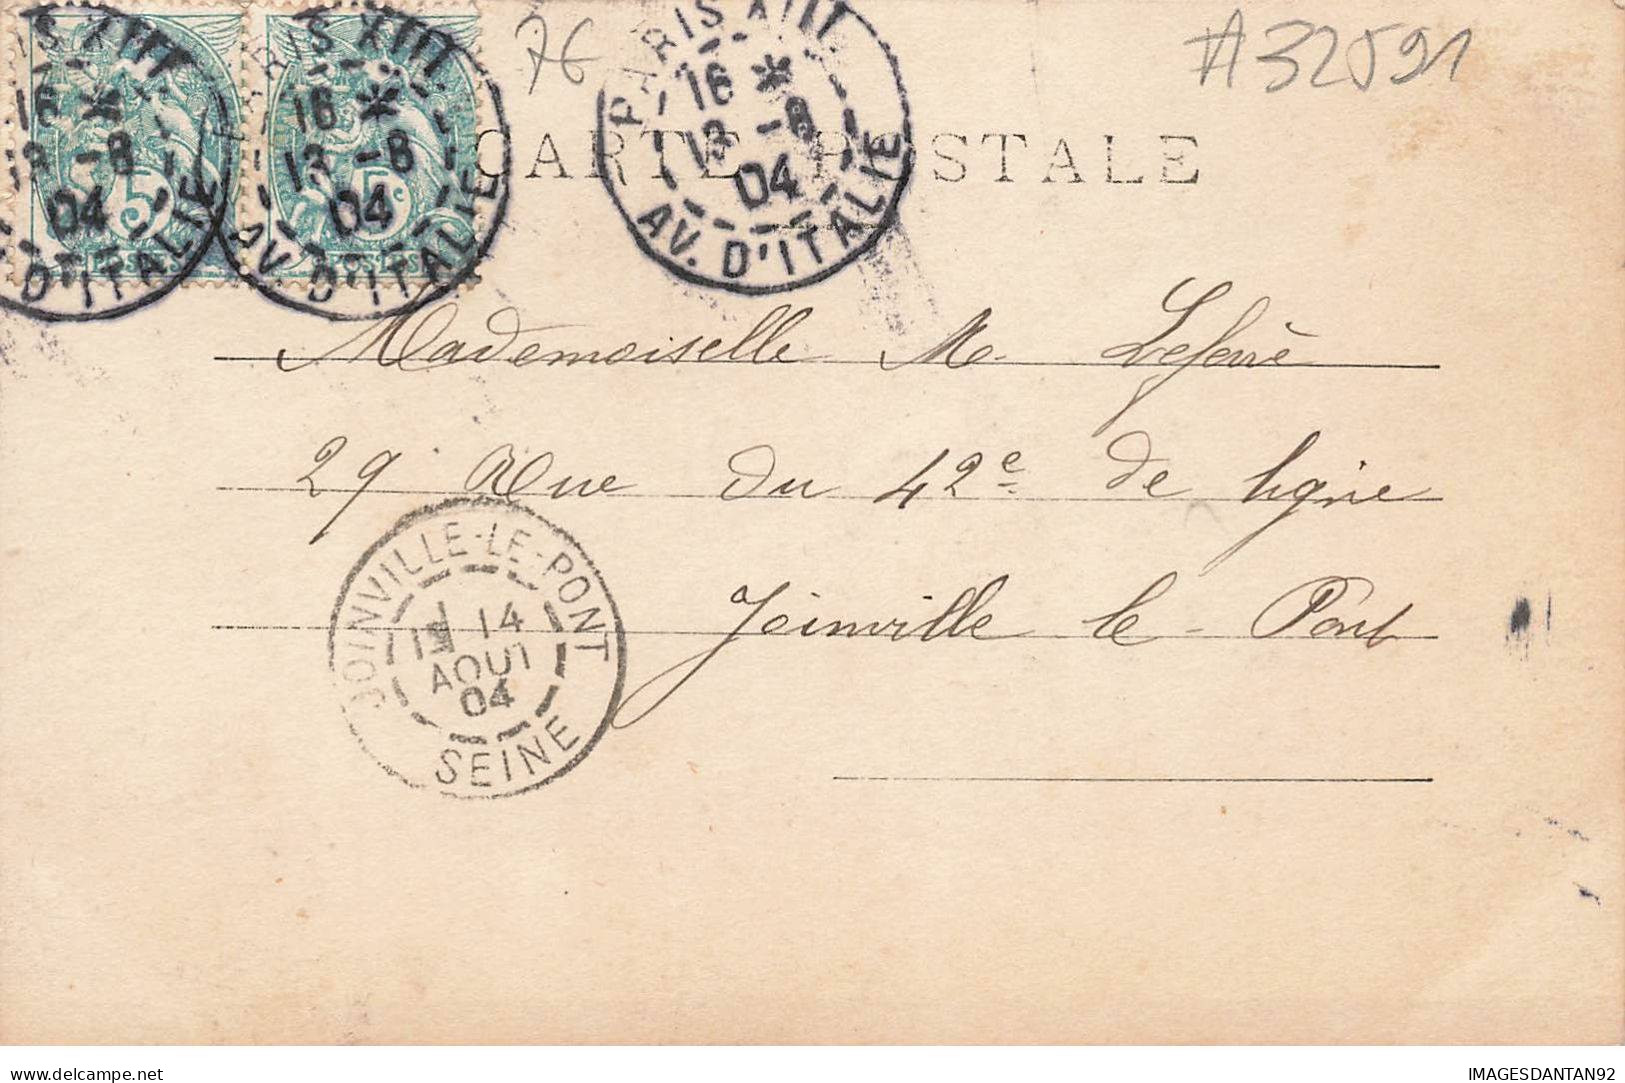 76
#32591
PARIS XIII
16 * 13 -8 04
AV. D'ITALIE
PARIS XIII
16 * 13 -8 04
AV. D'ITALIE
PARIS XIII
16 * 13 -8 04
AV. D'ITALIE
5c
POSTES
5c
POSTES
CARTE POSTALE
Mademoiselle M.
29 Rue du 42e de ligne
Joinville le-Pont
JOINVILLE-LE-PONT
14
AOUT
04
SEINE
IMAGESDANTAN92